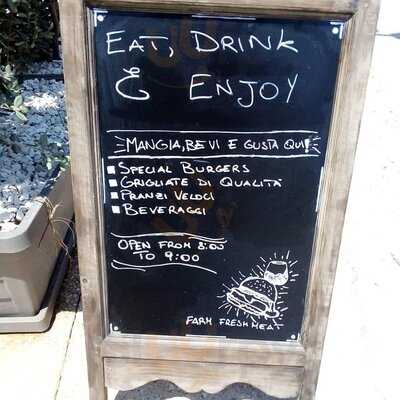 EAT, DRINK
& ENJOY
MANGIA, BEVI E GUSTA QUI!
SPECIAL BURGERS
GRIGLIATE DI QUALITÀ
PRANZI VELOCI
BEVERAGGI
OPEN FROM 8:00
TO 9:00
FARM FRESH MEAT